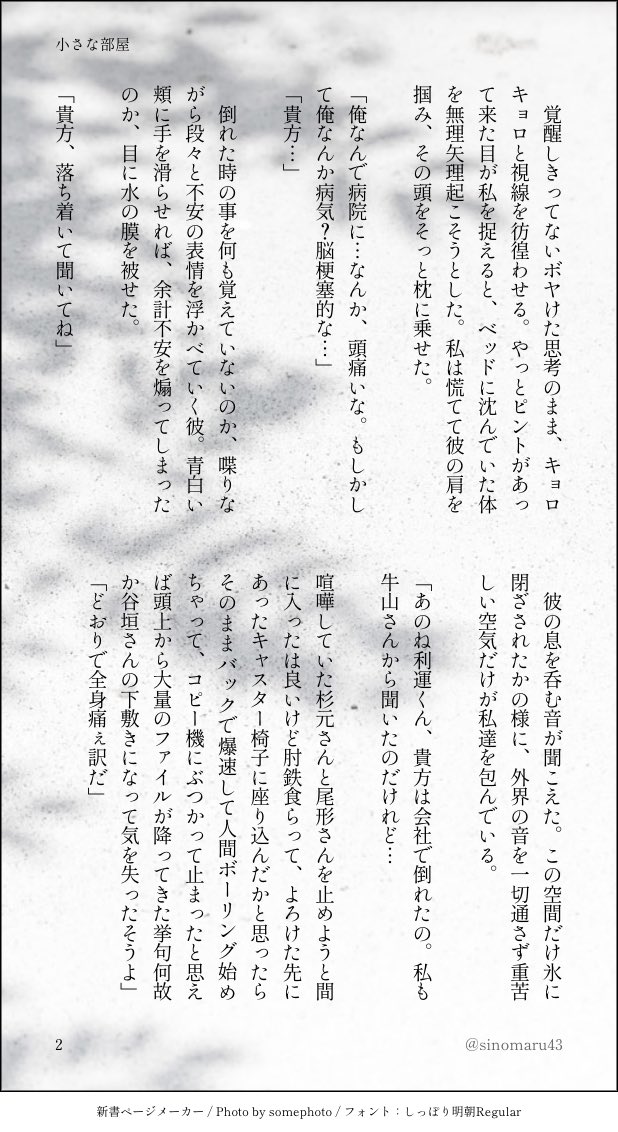 小さな部屋
　覚醒しきってないボヤけた思考のまま、キョロ
キョロと視線を彷徨わせる。やっとピントがあっ
て来た目が私を捉えると、ベッドに沈んでいた体
を無理矢理起こそうとした。私は慌てて彼の肩を
掴み、その頭をそっと枕に乗せた。
「俺なんで病院に…なんか、頭痛いな。もしかし
て俺なんか病気？脳梗塞的な…」
「貴方…」
　倒れた時の事を何も覚えていないのか、喋りな
がら段々と不安の表情を浮かべていく彼。青白い
頬に手を滑らせれば、余計不安を煽ってしまった
のか、目に水の膜を被せた。
「貴方、落ち着いて聞いてね」
　彼の息を呑む音が聞こえた。この空間だけ氷に
閉ざされたかの様に、外界の音を一切通さず重苦
しい空気だけが私達を包んでいる。
「あのね利運くん、貴方は会社で倒れたの。私も
牛山さんから聞いたのだけれど…
喧嘩していた杉元さんと尾形さんを止めようと間
に入ったは良いけど肘鉄食らって、よろけた先に
あったキャスター椅子に座り込んだかと思ったら
そのままバックで爆速して人間ボーリング始め
ちゃって、コピー機にぶつかって止まったと思え
ば頭上から大量のファイルが降ってきた挙句何故
か谷垣さんの下敷きになって気を失ったそうよ」
「どおりで全身痛ぇ訳だ」
2
@sinomaru43
新書ページメーカー / Photo by somephoto / フォント：しっぽり明朝Regular